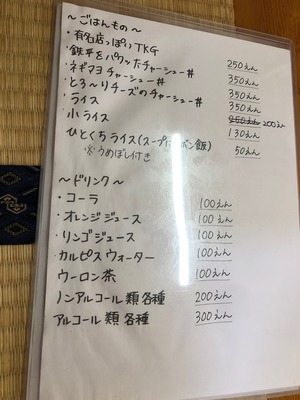 〜ごはんもの〜
・有名店っぽいTKG 250えん
・鉄平をパクッたチャーシュー丼 350えん
・ネギマヨチャーシュー丼 350えん
・とろ〜りチーズのチャーシュー丼 350えん
・ライス 250えん 200えん
・小ライス 130えん
ひとくちライス(スープにポン飯) 50えん
※うめぼし付き
〜ドリンク〜
・コーラ 100えん
・オレンジジュース 100えん
・リンゴジュース 100えん
・カルピスウォーター 100えん
・ウーロン茶 100えん
・ノンアルコール類各種 200えん
アルコール類各種 300えん